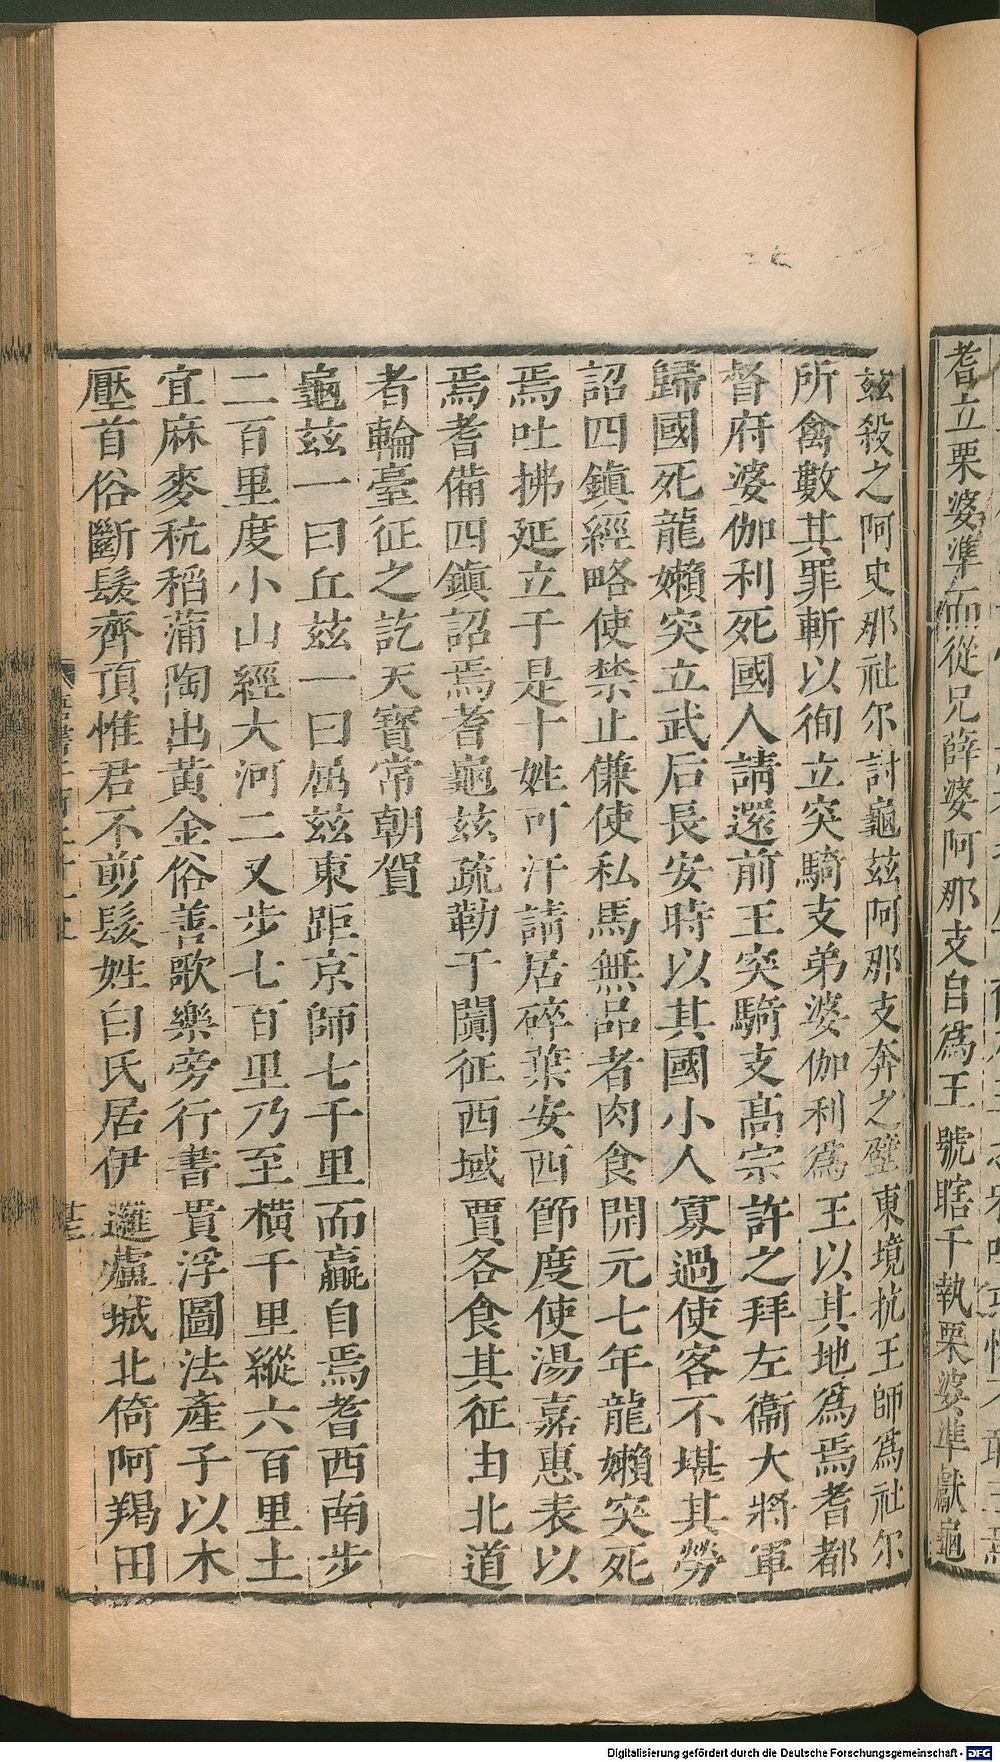 耆立栗婆準而從兄薛婆阿那支自爲王號瞎干執栗婆準獻龜
玆殺之阿史那社尔討龜玆阿那支奔之壁東境抗王師爲社尔
所禽數其罪斬以徇立突騎支弟婆伽利爲王以其地爲焉耆都
督府婆伽利死國人請還前王突騎支高宗許之拜左衞大將軍
歸國死龍嬾突立武后長安時以其國小人寡過使客不堪其勞
詔四鎮經略使禁止傔使私馬無品者肉食開元七年龍嬾突死
焉吐拂延立于是十姓可汗請居碎葉安西節度使湯嘉惠表以
焉耆備四鎮詔焉耆龜玆疏勒于闐征西域賈各食其征由北道
者輪臺征之訖天寶常朝賀
龜玆一曰丘玆一曰屈玆東距京師七千里而贏自焉耆西南步
二百里度小山經大河二又步七百里乃至橫千里縱六百里土
宜麻麥秔稻蒲陶出黃金俗善歌樂旁行書貴浮圖法產子以木
壓首俗斷髮齊頂惟君不剪髮姓白氏居伊邏盧城北倚阿羯田
Digitalisierung gefördert durch die Deutsche Forschungsgemeinschaft - DFG